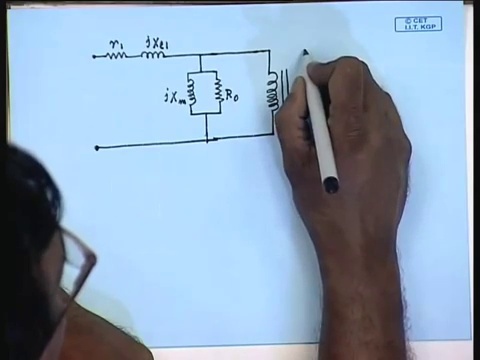 © CET
I.I.T. KGP
r1 jxl1
jxm R0